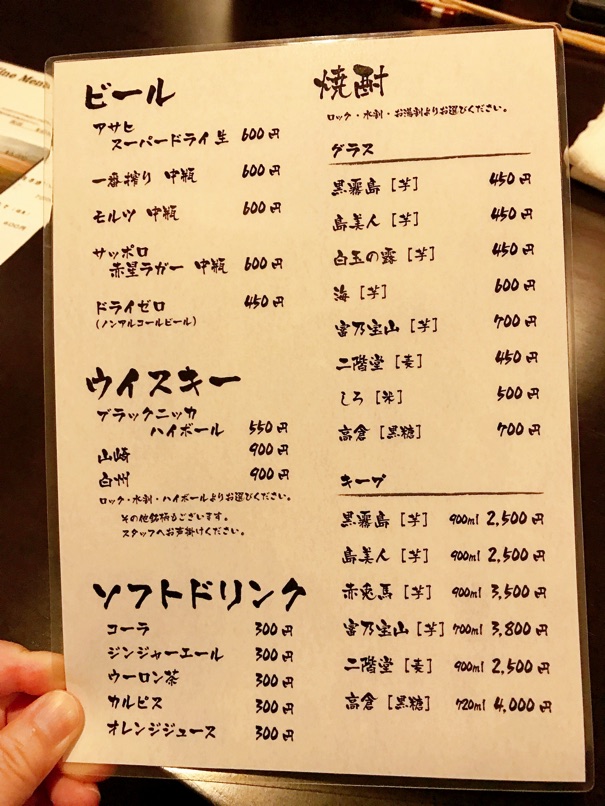 ビール
アサヒ
スーパードライ 生 600円
一番搾り 中瓶 600円
モルツ 中瓶 600円
サッポロ
赤星ラガー 中瓶 600円
ドライゼロ 450円
(ノンアルコールビール)
ウイスキー
ブラックニッカ
ハイボール 550円
山崎 900円
白州 900円
ロック・水割・ハイボールよりお選びください。
その他銘柄もございます。
スタッフへお声掛けください。
ソフトドリンク
コーラ 300円
ジンジャーエール 300円
ウーロン茶 300円
カルピス 300円
オレンジジュース 300円
焼酎
ロック・水割・お湯割よりお選びください。
グラス
黒霧島 [芋] 450円
島美人 [芋] 450円
白玉の露 [芋] 450円
海 [芋] 600円
富乃宝山 [芋] 700円
二階堂 [麦] 450円
しろ [米] 500円
高倉 [黒糖] 700円
キープ
黒霧島 [芋] 900ml 2,500円
島美人 [芋] 900ml 2,500円
赤兎馬 [芋] 900ml 3,500円
富乃宝山 [芋] 700ml 3,800円
二階堂 [麦] 900ml 2,500円
高倉 [黒糖] 720ml 4,000円